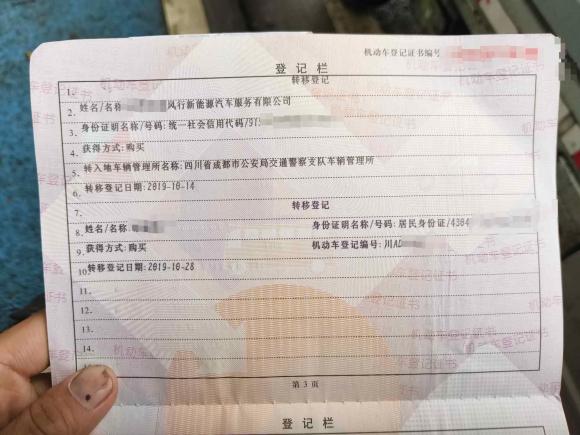 机动车登记证书编号
登记栏
1. 转移登记
2. 姓名/名称 风行新能源汽车服务有限公司
3. 身份证明名称/号码:统一社会信用代码/915
4. 获得方式:购买
5. 转入地车辆管理所名称:四川省成都市公安局交通警察支队车辆管理所
6. 转移登记日期:2019-10-14
7. 转移登记
8. 姓名/名称: 身份证明名称/号码:居民身份证/4304
9. 获得方式:购买 机动车登记编号:川AD
10. 转移登记日期:2019-10-28
11.
12.
13.
14.
第3页
登记栏